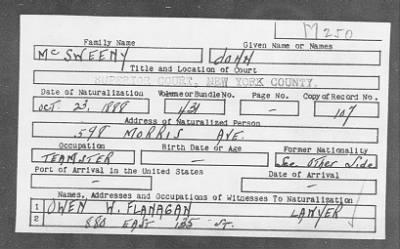 M250
Family Name Given Name or Names
McSWEENY JOHN
Title and Location of Court
SUPERIOR COURT, NEW YORK COUNTY.
Date of Naturalization Volume or Bundle No. Page No. Copy of Record No.
OCT. 23, 1888 431 - 107
Address of Naturalized Person
598 MORRIS AVE.
Occupation Birth Date or Age Former Nationality
TEAMSTER - See Other Side
Port of Arrival in the United States Date of Arrival
- -
Names, Addresses and Occupations of Witnesses To Naturalization
1 OWEN W. FLANAGAN LAWYER
2 880 EAST 135 ST.